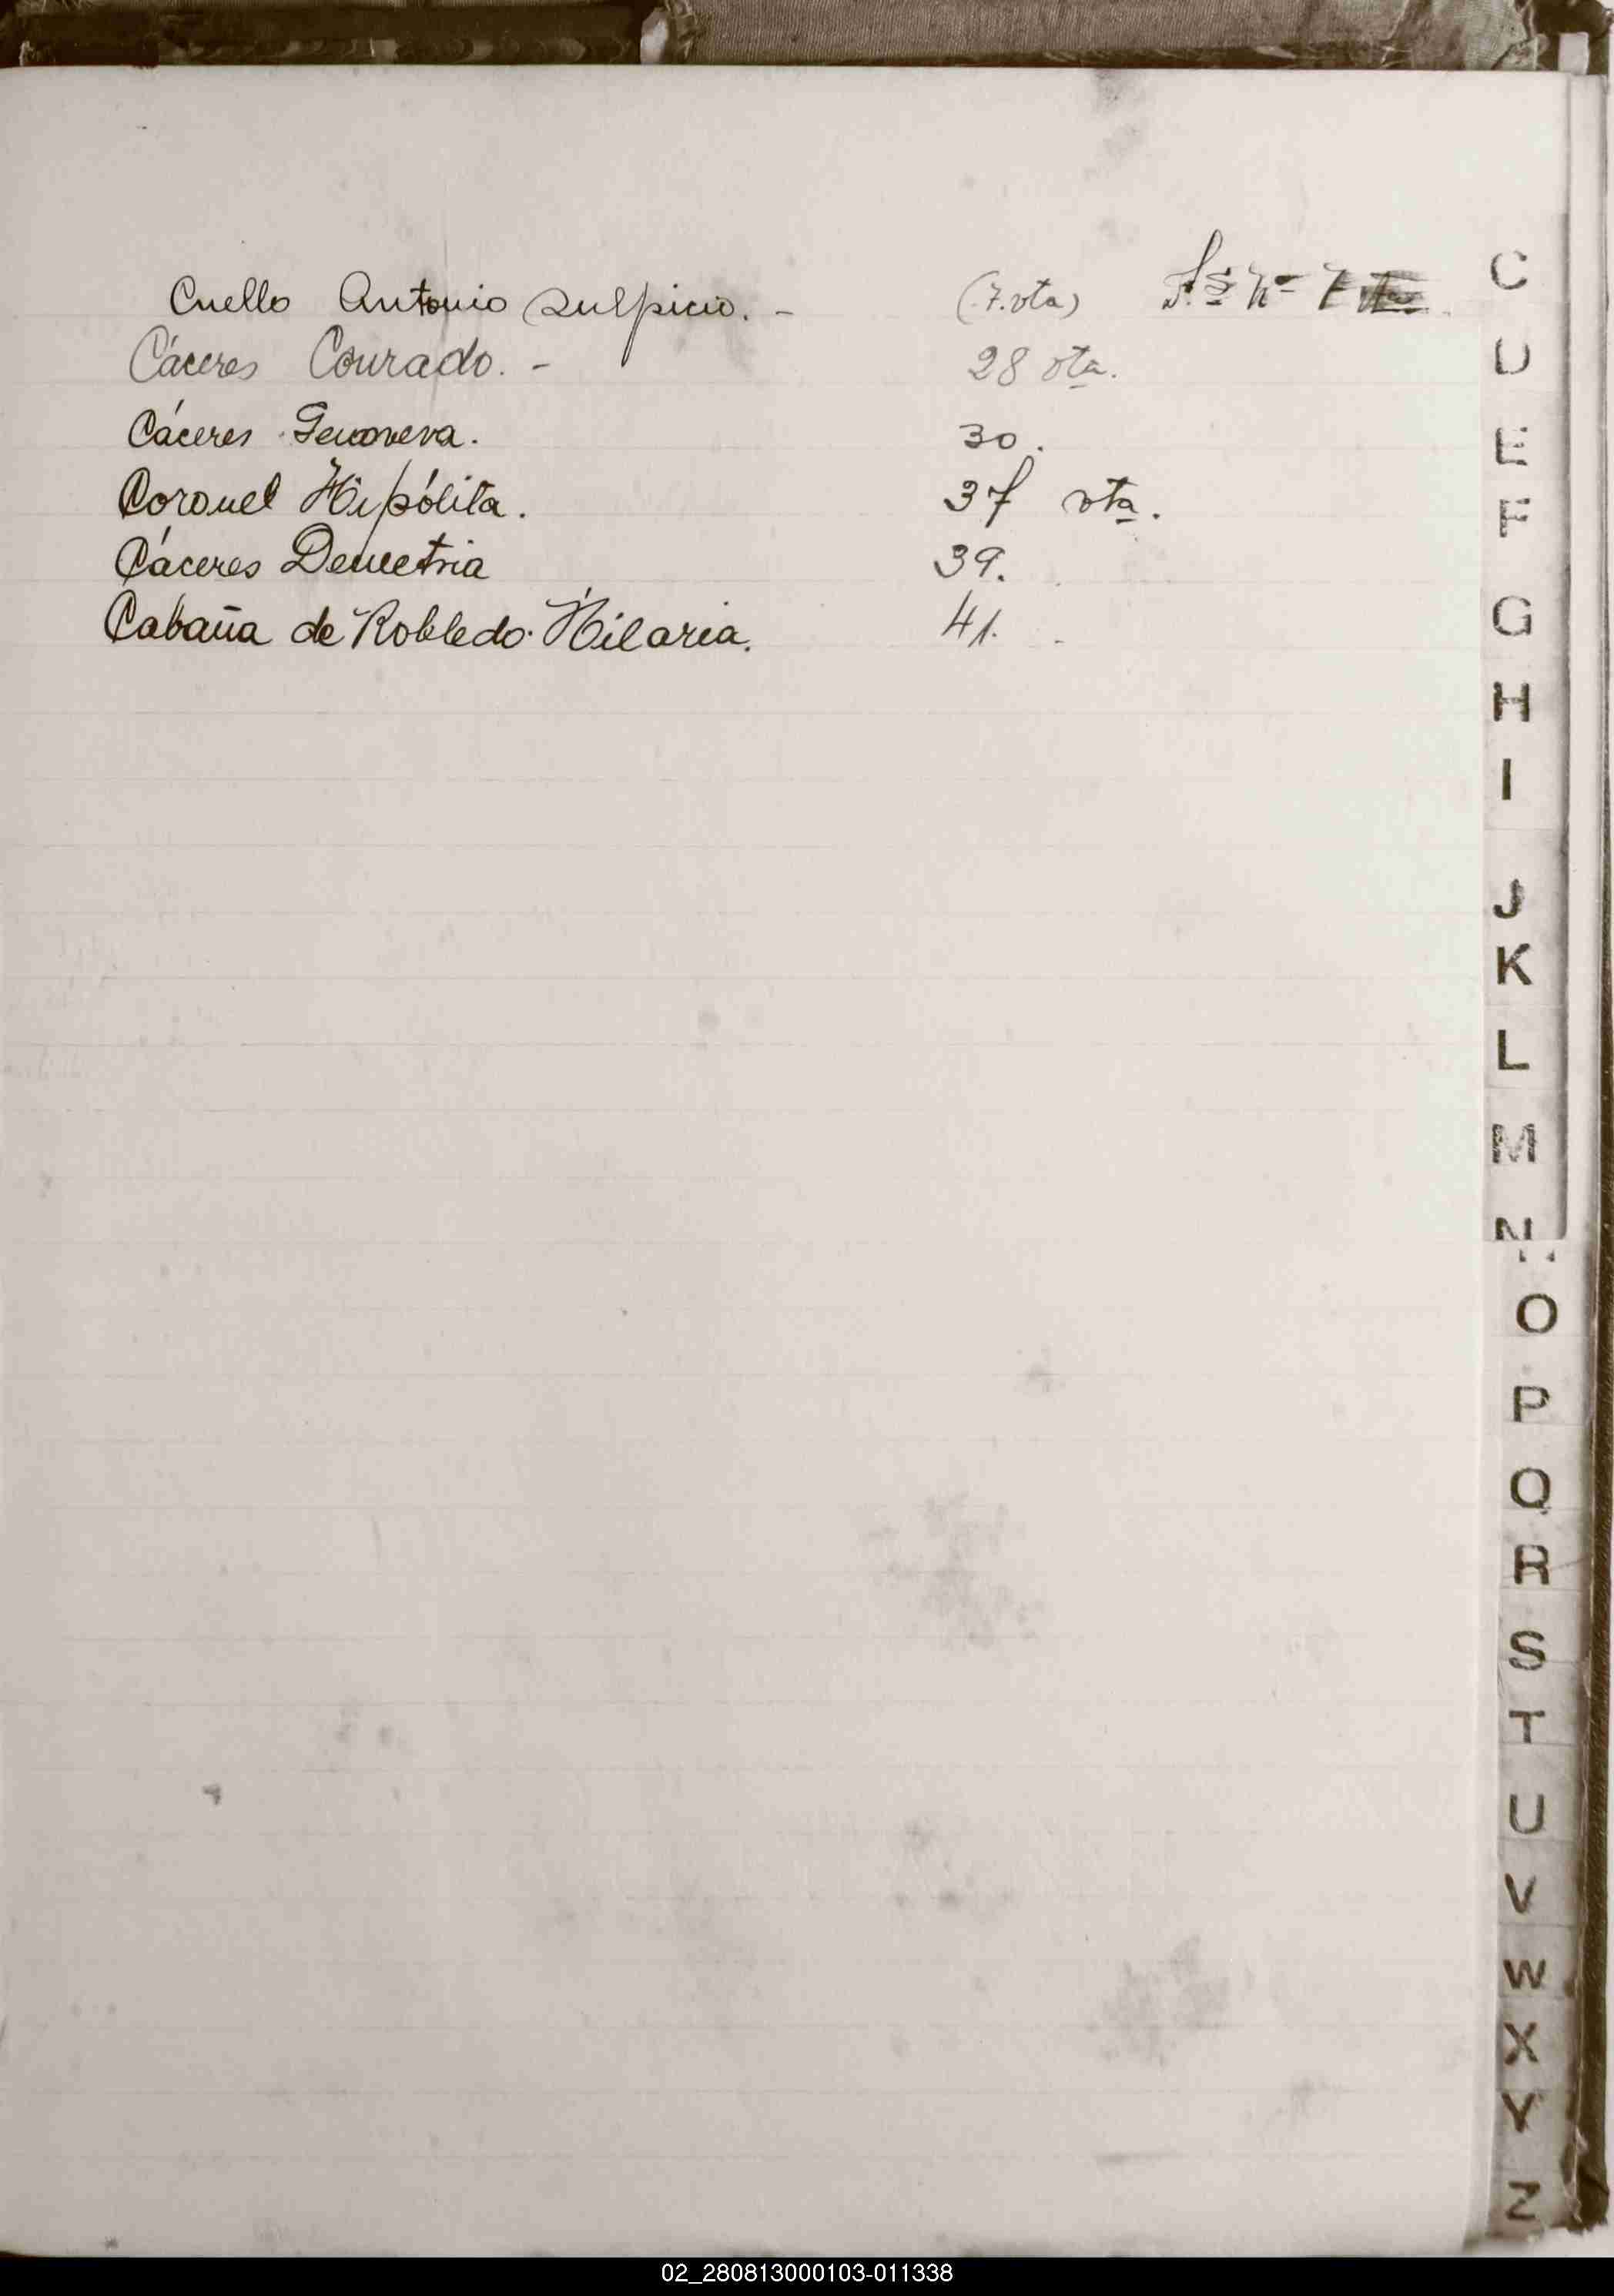 Cuello Antonio Sulpicio. - (7. vta)
Cáceres Conrado. - 28 vta.
Cáceres Genoveva. 30.
Coronel Hipólita. 37 vta.
Cáceres Demetria 39.
Cabaña de Robledo Hilaria. 41.
C
D
E
F
G
H
I
J
K
L
M
N
O
P
Q
R
S
T
U
V
W
X
Y
Z
02_280813000103-011338